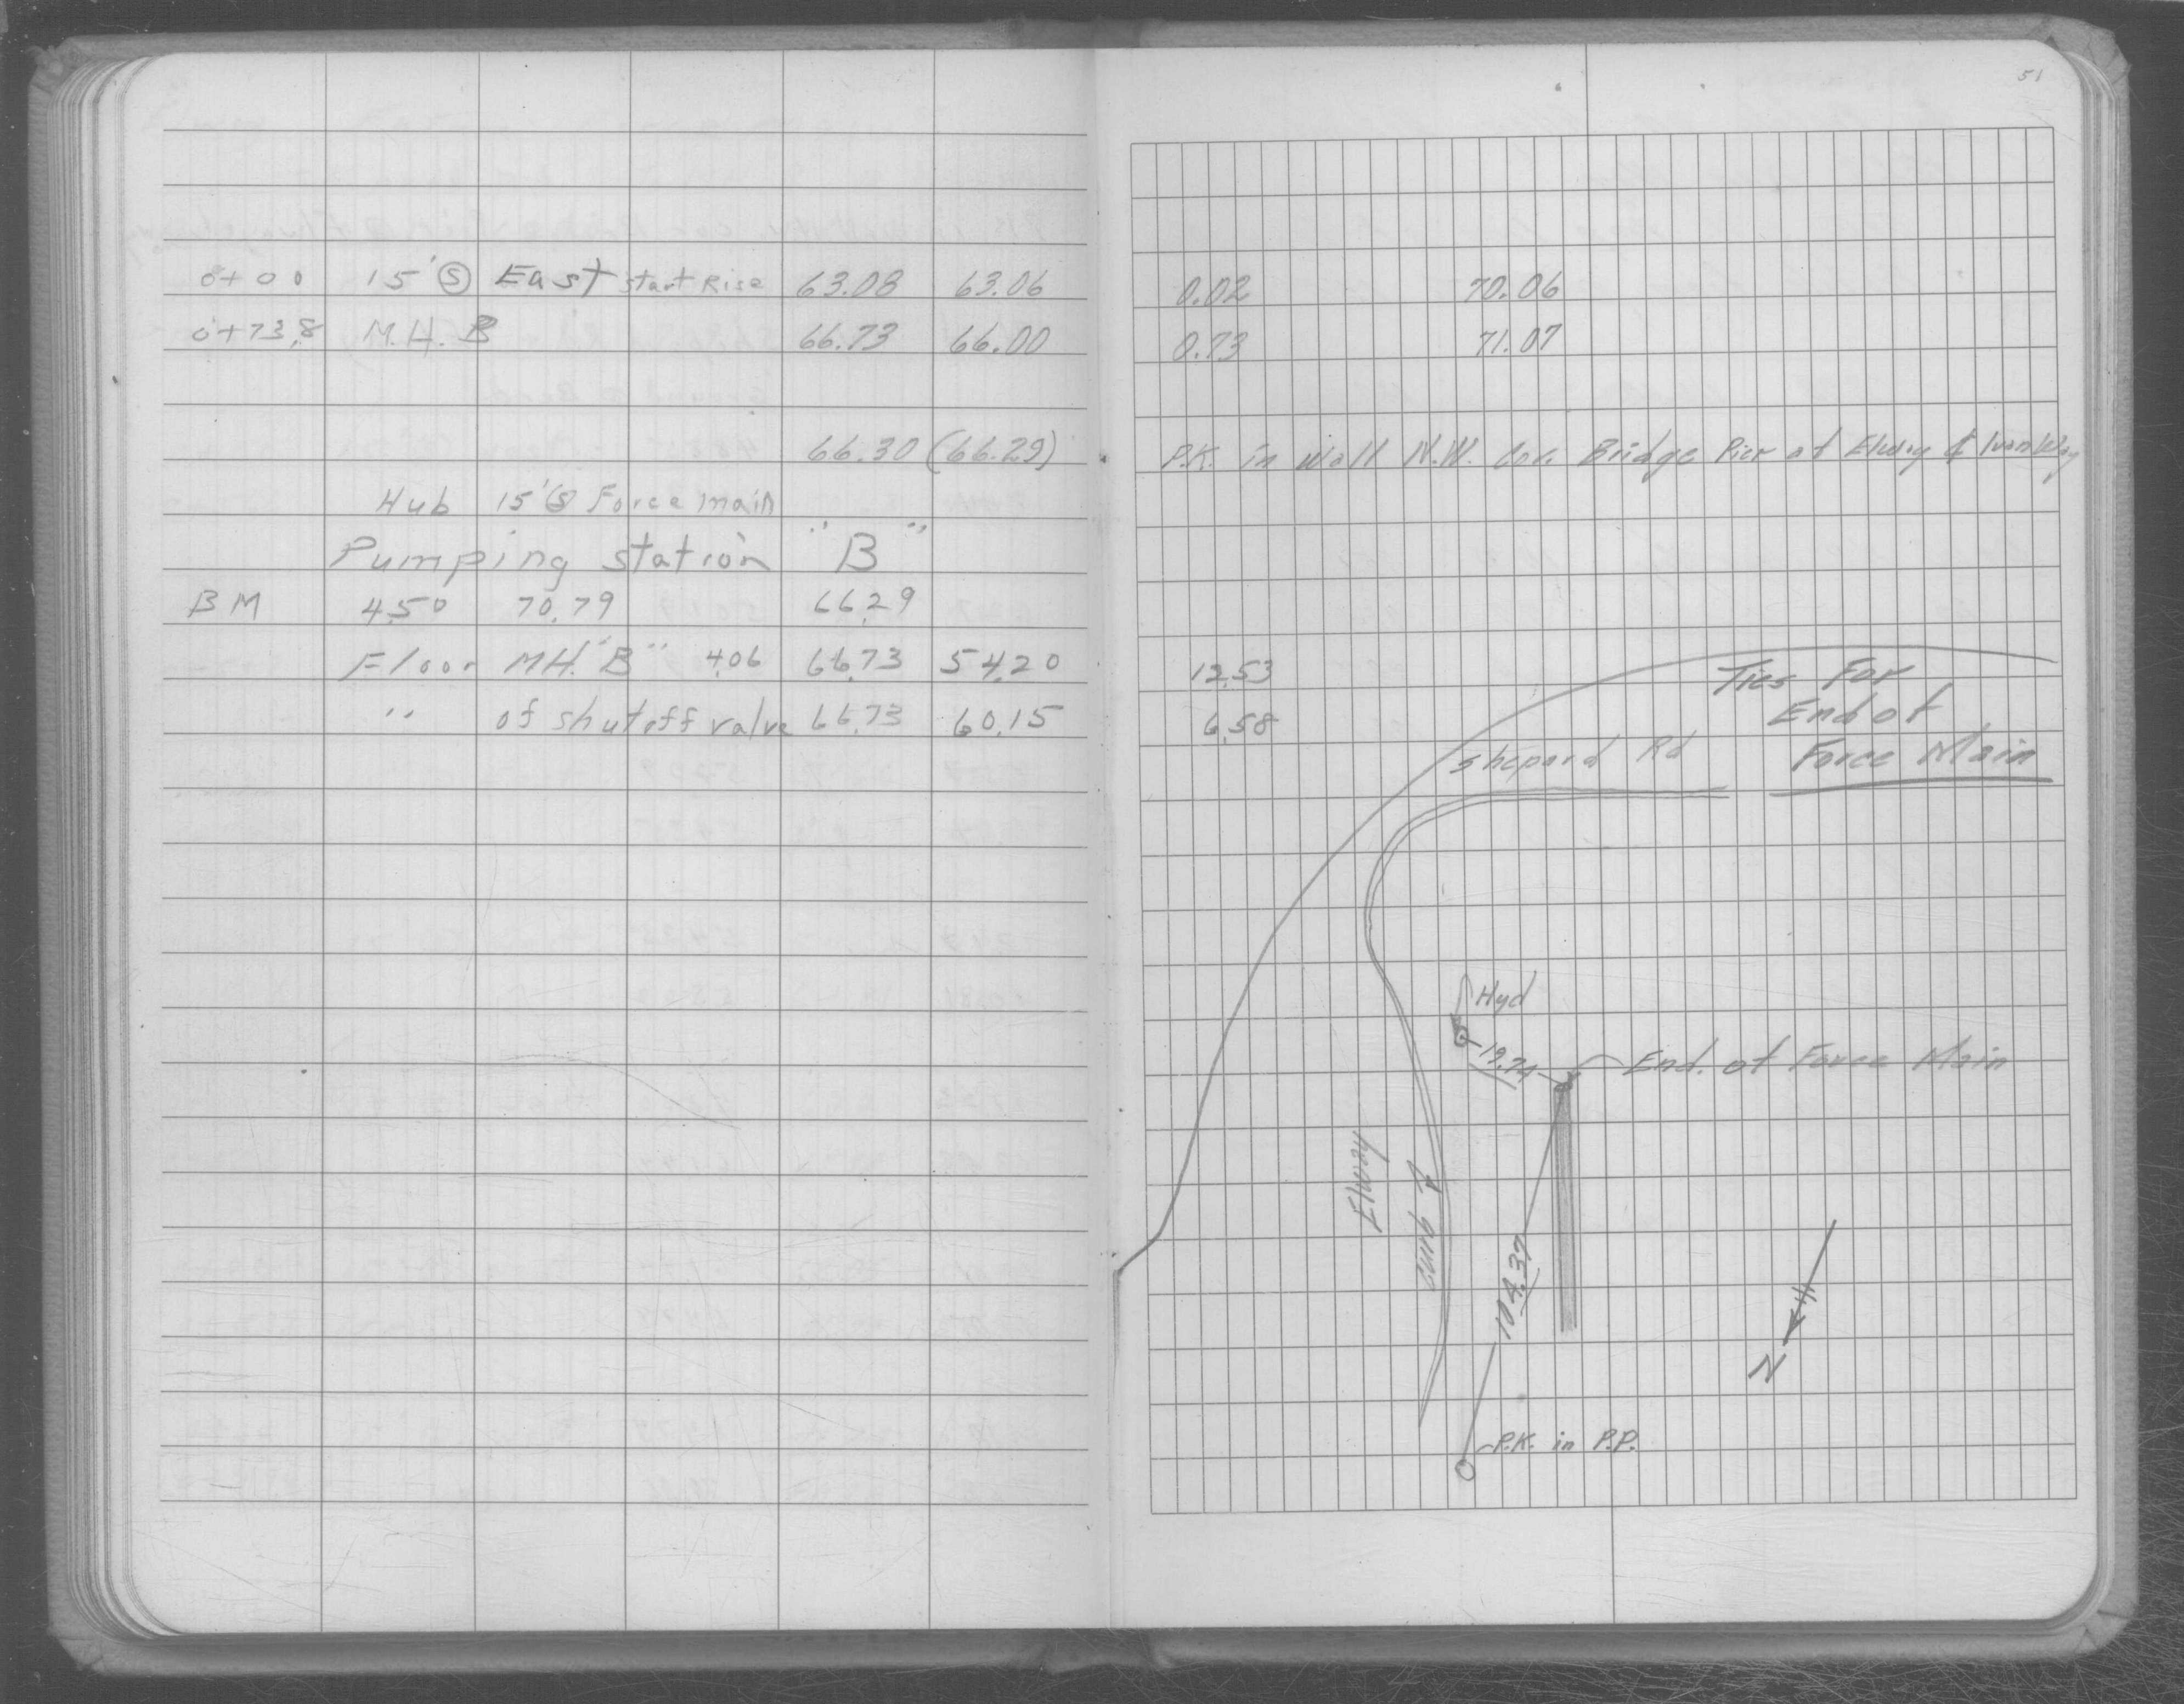 51
0+00 15' Ⓢ East start Rise 63.08 63.06 0.02 70.06
0+73.8 M.H. B 66.73 66.00 0.73 71.07
66.30 (66.29) P.K. in Wall N.W. Cor. Bridge Pier at Elway &
Hub 15' Ⓢ Force main
Pumping station "B"
BM 4.50 70.79 66.29
Floor MH. "B" 4.06 66.73 54.20 12.53
" of shutoff valve 66.73 60.15 6.58
Ties For
End of
Force Main
Shepard Rd
Hyd
19.74
End. of Force Main
Elway
Curb
104.37
N
P.K. in P.P.